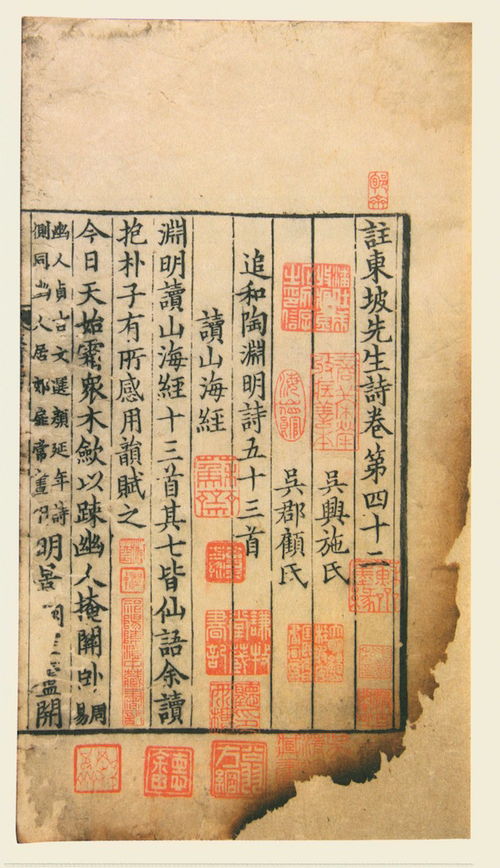 註東坡先生詩卷第四十二
吳興施氏
吳郡顧氏
追和陶淵明詩五十三首
讀山海經
淵明讀山海經十三首其七皆仙語余讀
抱朴子有所感用韻賦之
今日天始霜衆木歛以疎幽人掩關卧周易
幽人貞吉文選顏延年詩
側同幽人居郊扉常晝閉
明景開
謙牧堂藏書記
翁方綱